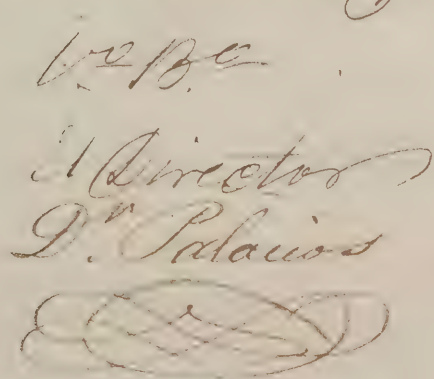 Vº Bº
El Director
Dn. Palacios